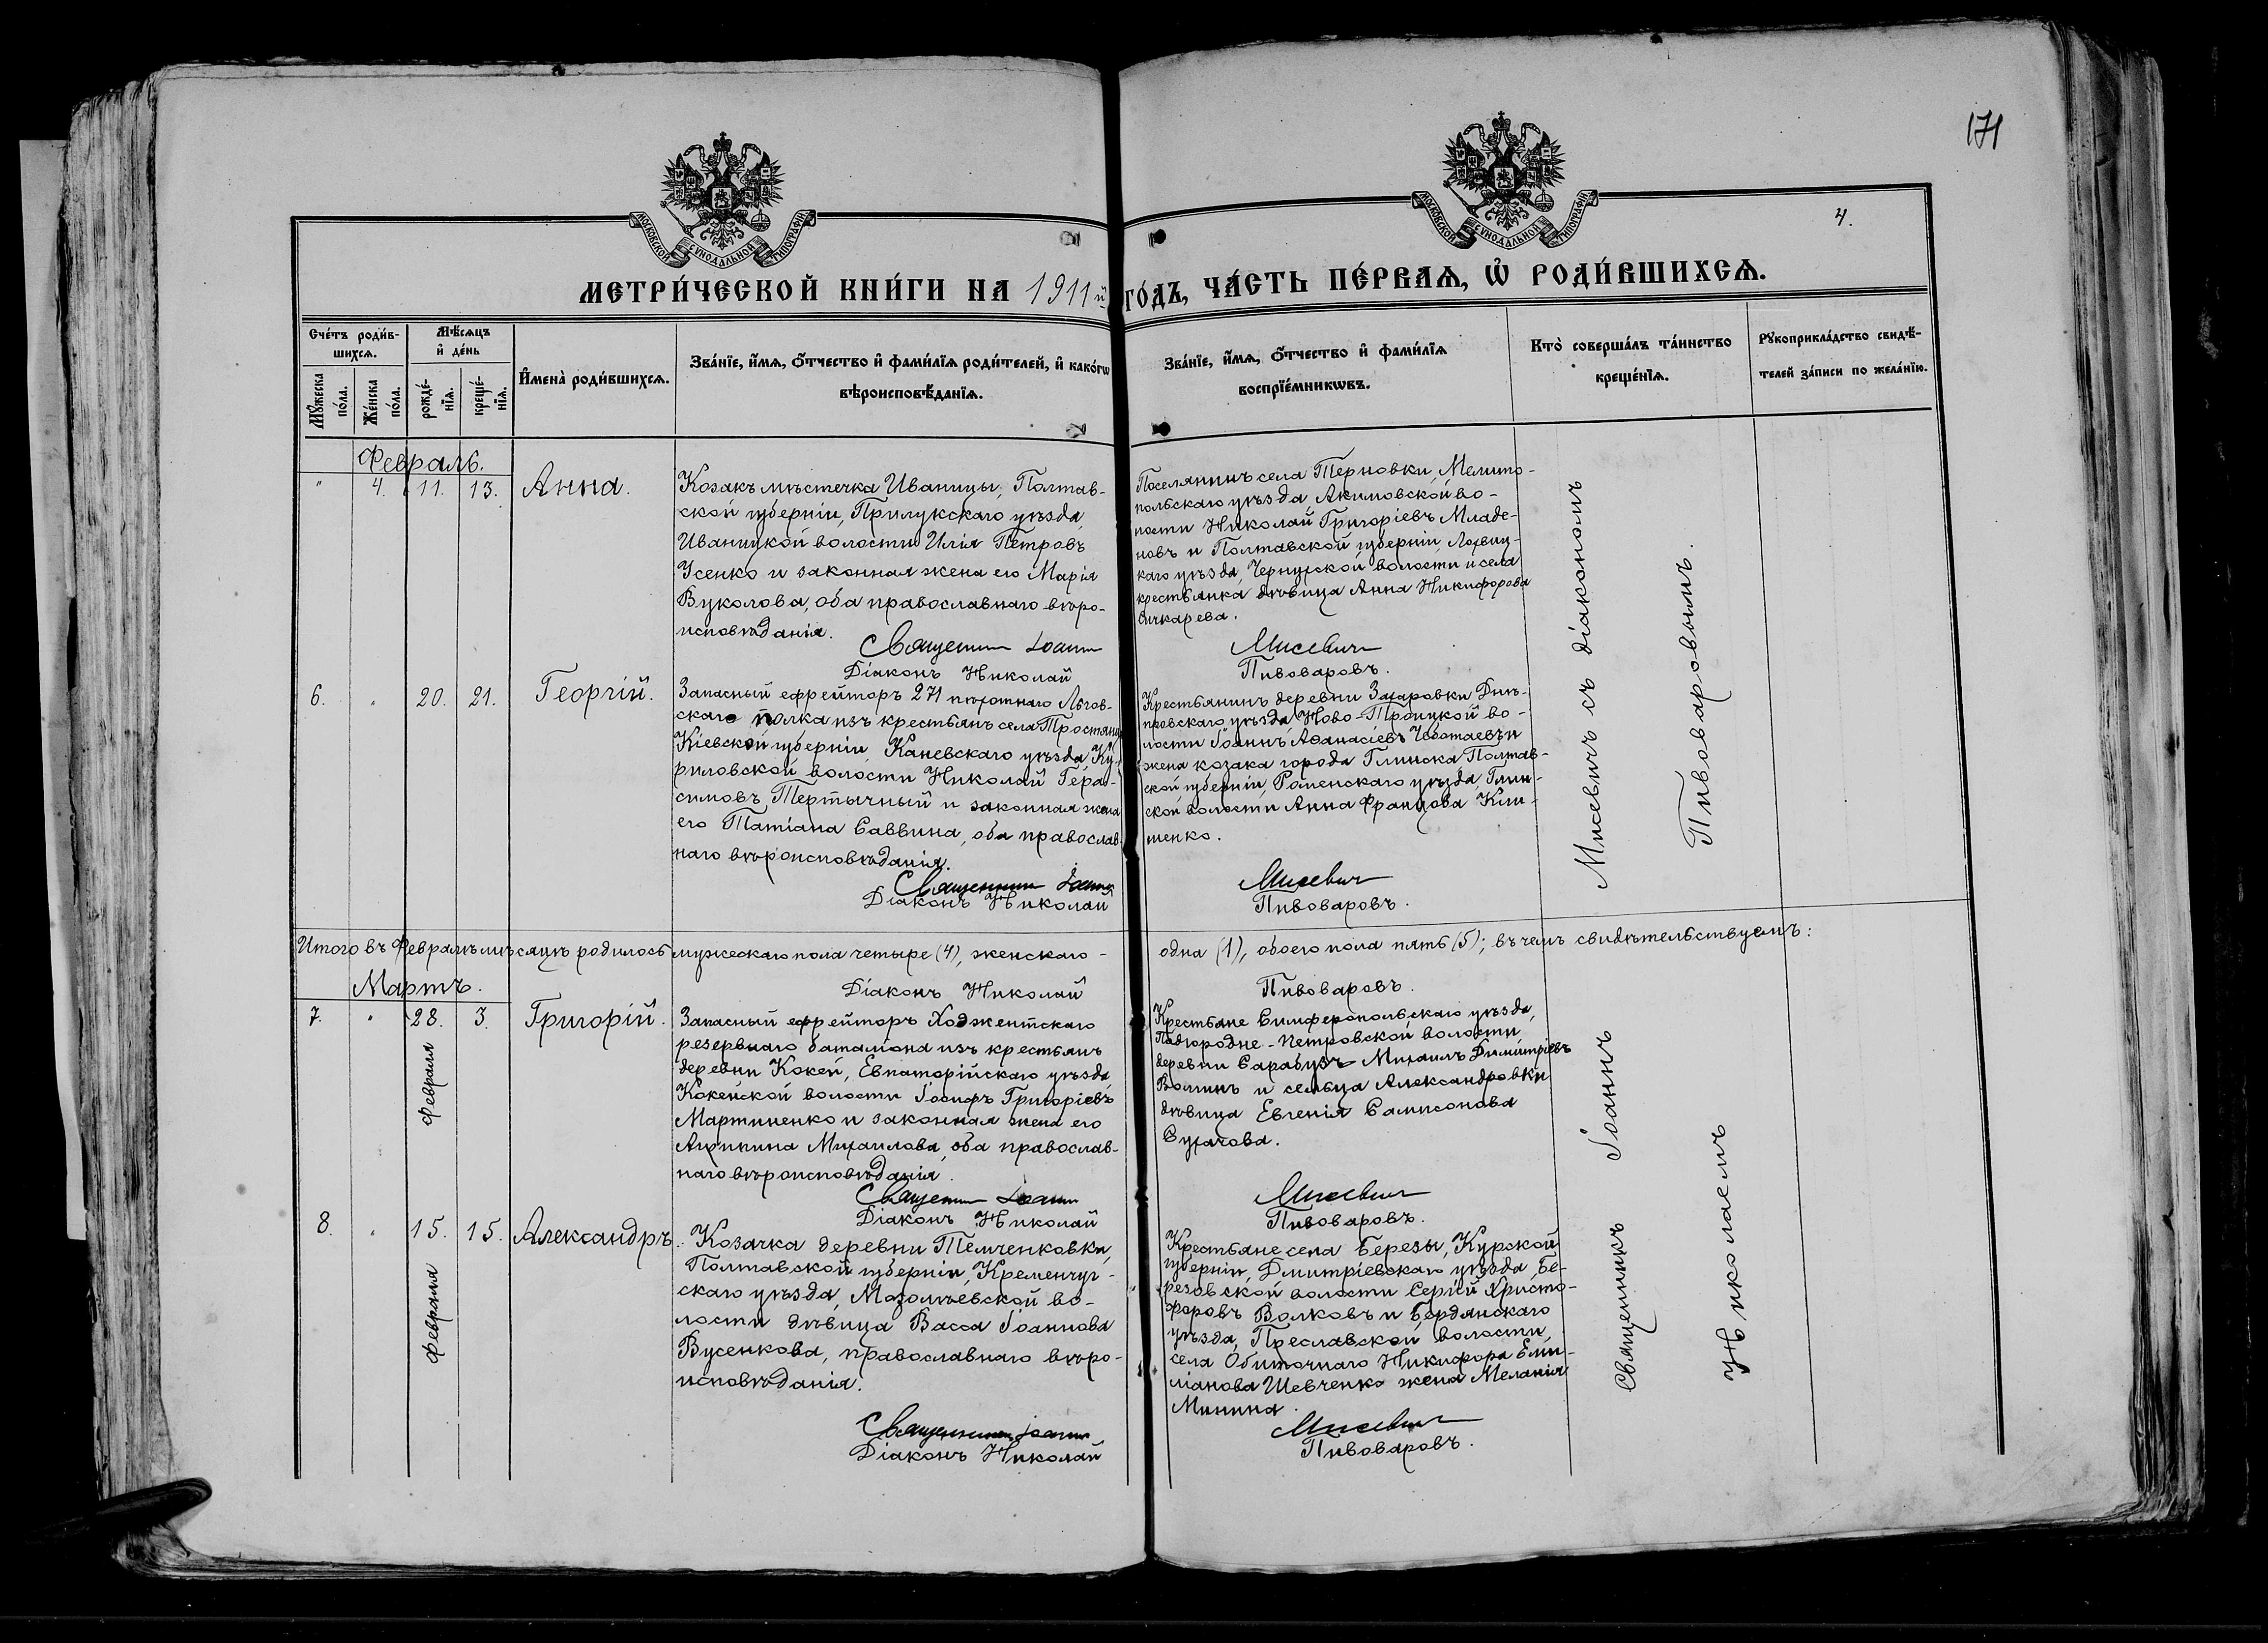 171
4.
МОСКОВСКОЙ СѴНОДАЛЬНОЙ ТИПОГРАФІИ
МОСКОВСКОЙ СѴНОДАЛЬНОЙ ТИПОГРАФІИ
МЕТРИ́ЧЕСКОЙ КНИ́ГИ НА 1911й ГО́ДЪ, ЧА́СТЬ ПЕ́РВАѦ, Ѡ҆ РОДИ́ВШИХСѦ.
Сче́тъ роди́в-
шихсѧ.
Мꙋ́жеска по́ла.
Же́нска по́ла.
Мѣ́сѧцъ
и҆ де́нь
рожде́-
нїѧ.
креще́-
нїѧ.
И҆мена̀ роди́вшихсѧ.
Зва́нїе, и҆́мѧ, ѻ҆́тчество и҆ фами́лїѧ роди́телей, и҆ како́гѡ
вѣроисповѣ́данїѧ.
Зва́нїе, и҆́мѧ, ѻ҆́тчество и҆ фами́лїѧ
воспрїе́мникѡвъ.
Кто̀ соверша́лъ та́инство
креще́нїѧ.
Рꙋкоприкла́дство свидѣ́-
телей за́писи по жела́нїю.
Февраль.
" 4. 11. 13. Анна.
Козакъ мѣстечка Иваницы, Полтав-
ской губерніи, Прилукскаго уѣзда,
Иваницкой волости Илія Петровъ
Усенко и законная жена его Марія
Вуколова, оба православнаго вѣро-
исповѣданія.
Священник Іоанн
Діаконъ Николай
Поселянинъ села Терновки, Мелито-
польскаго уѣзда, Акимовской во-
лости Николай Григоріевъ Младе-
новъ и Полтавской губерніи, Лохвиц-
каго уѣзда, Чернухской волости и села
крестьянка дѣвица Анна Никифорова
Мисевич
Пивоваровъ.
6. " 20. 21. Георгій.
Запасный ефрейторъ 271 пѣхотнаго Льгов-
скаго полка изъ крестьянъ села Тростянц
Кіевской губерніи, Каневскаго уѣзда, Ку-
риловской волости Николай Гера-
симовъ Тертычный и законная жена
его Татіана Саввина, оба православ-
наго вѣроисповѣданія.
Священник Іоанн
Діаконъ Николай
Крестьянинъ деревни Захаровки Днѣ-
провскаго уѣзда, Ново-Троицкой во-
лости Іоаннъ Аѳанасіевъ Чеботаевъ и
жена козака города Глинска Полтав-
ской губерніи, Роменскаго уѣзда, Глин-
ской волости Анна Францова Кли-
менко.
Мисевич
Пивоваровъ.
Итого въ Февралѣ мѣсяцѣ родилось мужескаго пола четыре (4), женскаго - одна (1), обоего пола пять (5); въ чемъ свидѣтельствуемъ:
Діаконъ Николай Пивоваровъ.
Мартъ.
7. " 28. 3. Григорій.
Февраля
Запасный ефрейторъ Ходжентскаго
резервнаго баталіона изъ крестьянъ
деревни Кокей, Евпаторійскаго уѣзда,
Кокейской волости Іосифъ Григоріевъ
Мартиненко и законная жена его
Агрипина Михаилова, оба православ-
наго вѣроисповѣданія.
Священник Іоанн
Діаконъ Николай
Крестьяне Симферопольскаго уѣзда,
Подгородне-Петровской волости,
деревни Сарабузъ Михаилъ Димитріевъ
Волинъ и сельца Александровки
дѣвица Евгенія Сампсонова
Сухачова.
Мисевич
Пивоваровъ.
8. " 15. 15. Александръ.
Февраля
Козачка деревни Темченковки,
Полтавской губерніи, Кременчуг-
скаго уѣзда, Мозолѣевской во-
лости дѣвица Васса Іоаннова
Вусенкова, православнаго вѣро-
исповѣданія.
Священник Іоанн
Діаконъ Николай
Крестьяне села Березы, Курской
губерніи, Дмитріевскаго уѣзда, Бе-
резовской волости Сергій Христо-
форовъ Волковъ и Бердянскаго
уѣзда, Преславской волости,
села Обиточнаго Никифора Еми-
ліанова Шевченко жена Меланія
Минина.
Мисевич
Пивоваровъ.
Священникъ Іоаннъ Мисевичъ съ діакономъ
Николаемъ Пивоваровымъ.